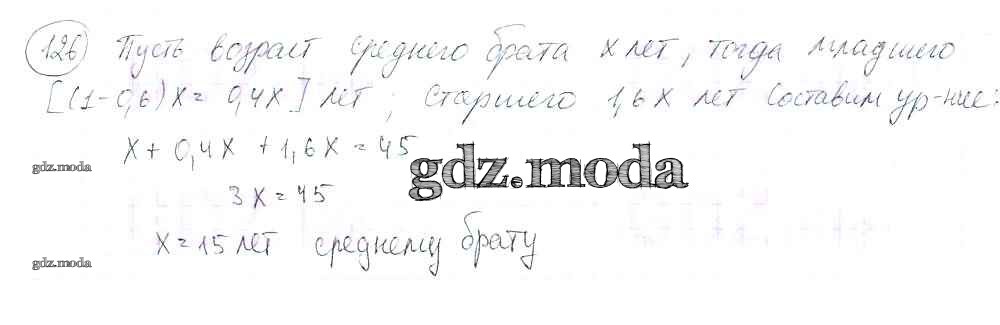 126 Пусть возраст среднего брата x лет, тогда младшего
[(1-0,6)x = 0,4x] лет, старшего 1,6x лет Составим ур-ние:
x + 0,4x + 1,6x = 45
gdz.moda
gdz.moda
3x = 45
x = 15 лет среднему брату
gdz.moda